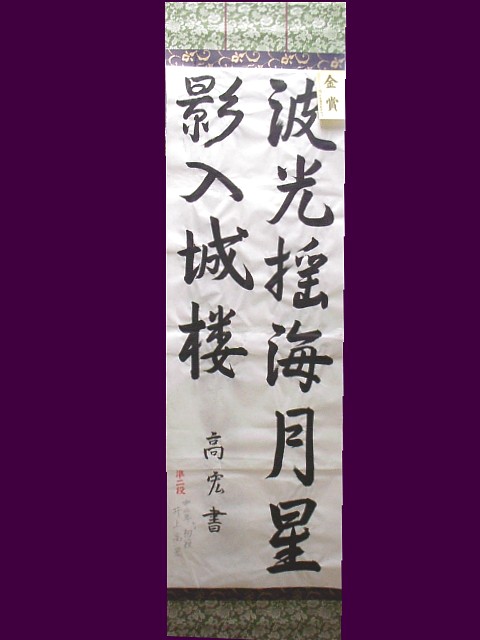 金賞
波光揺海月星
影入城楼
高宏書
準二段